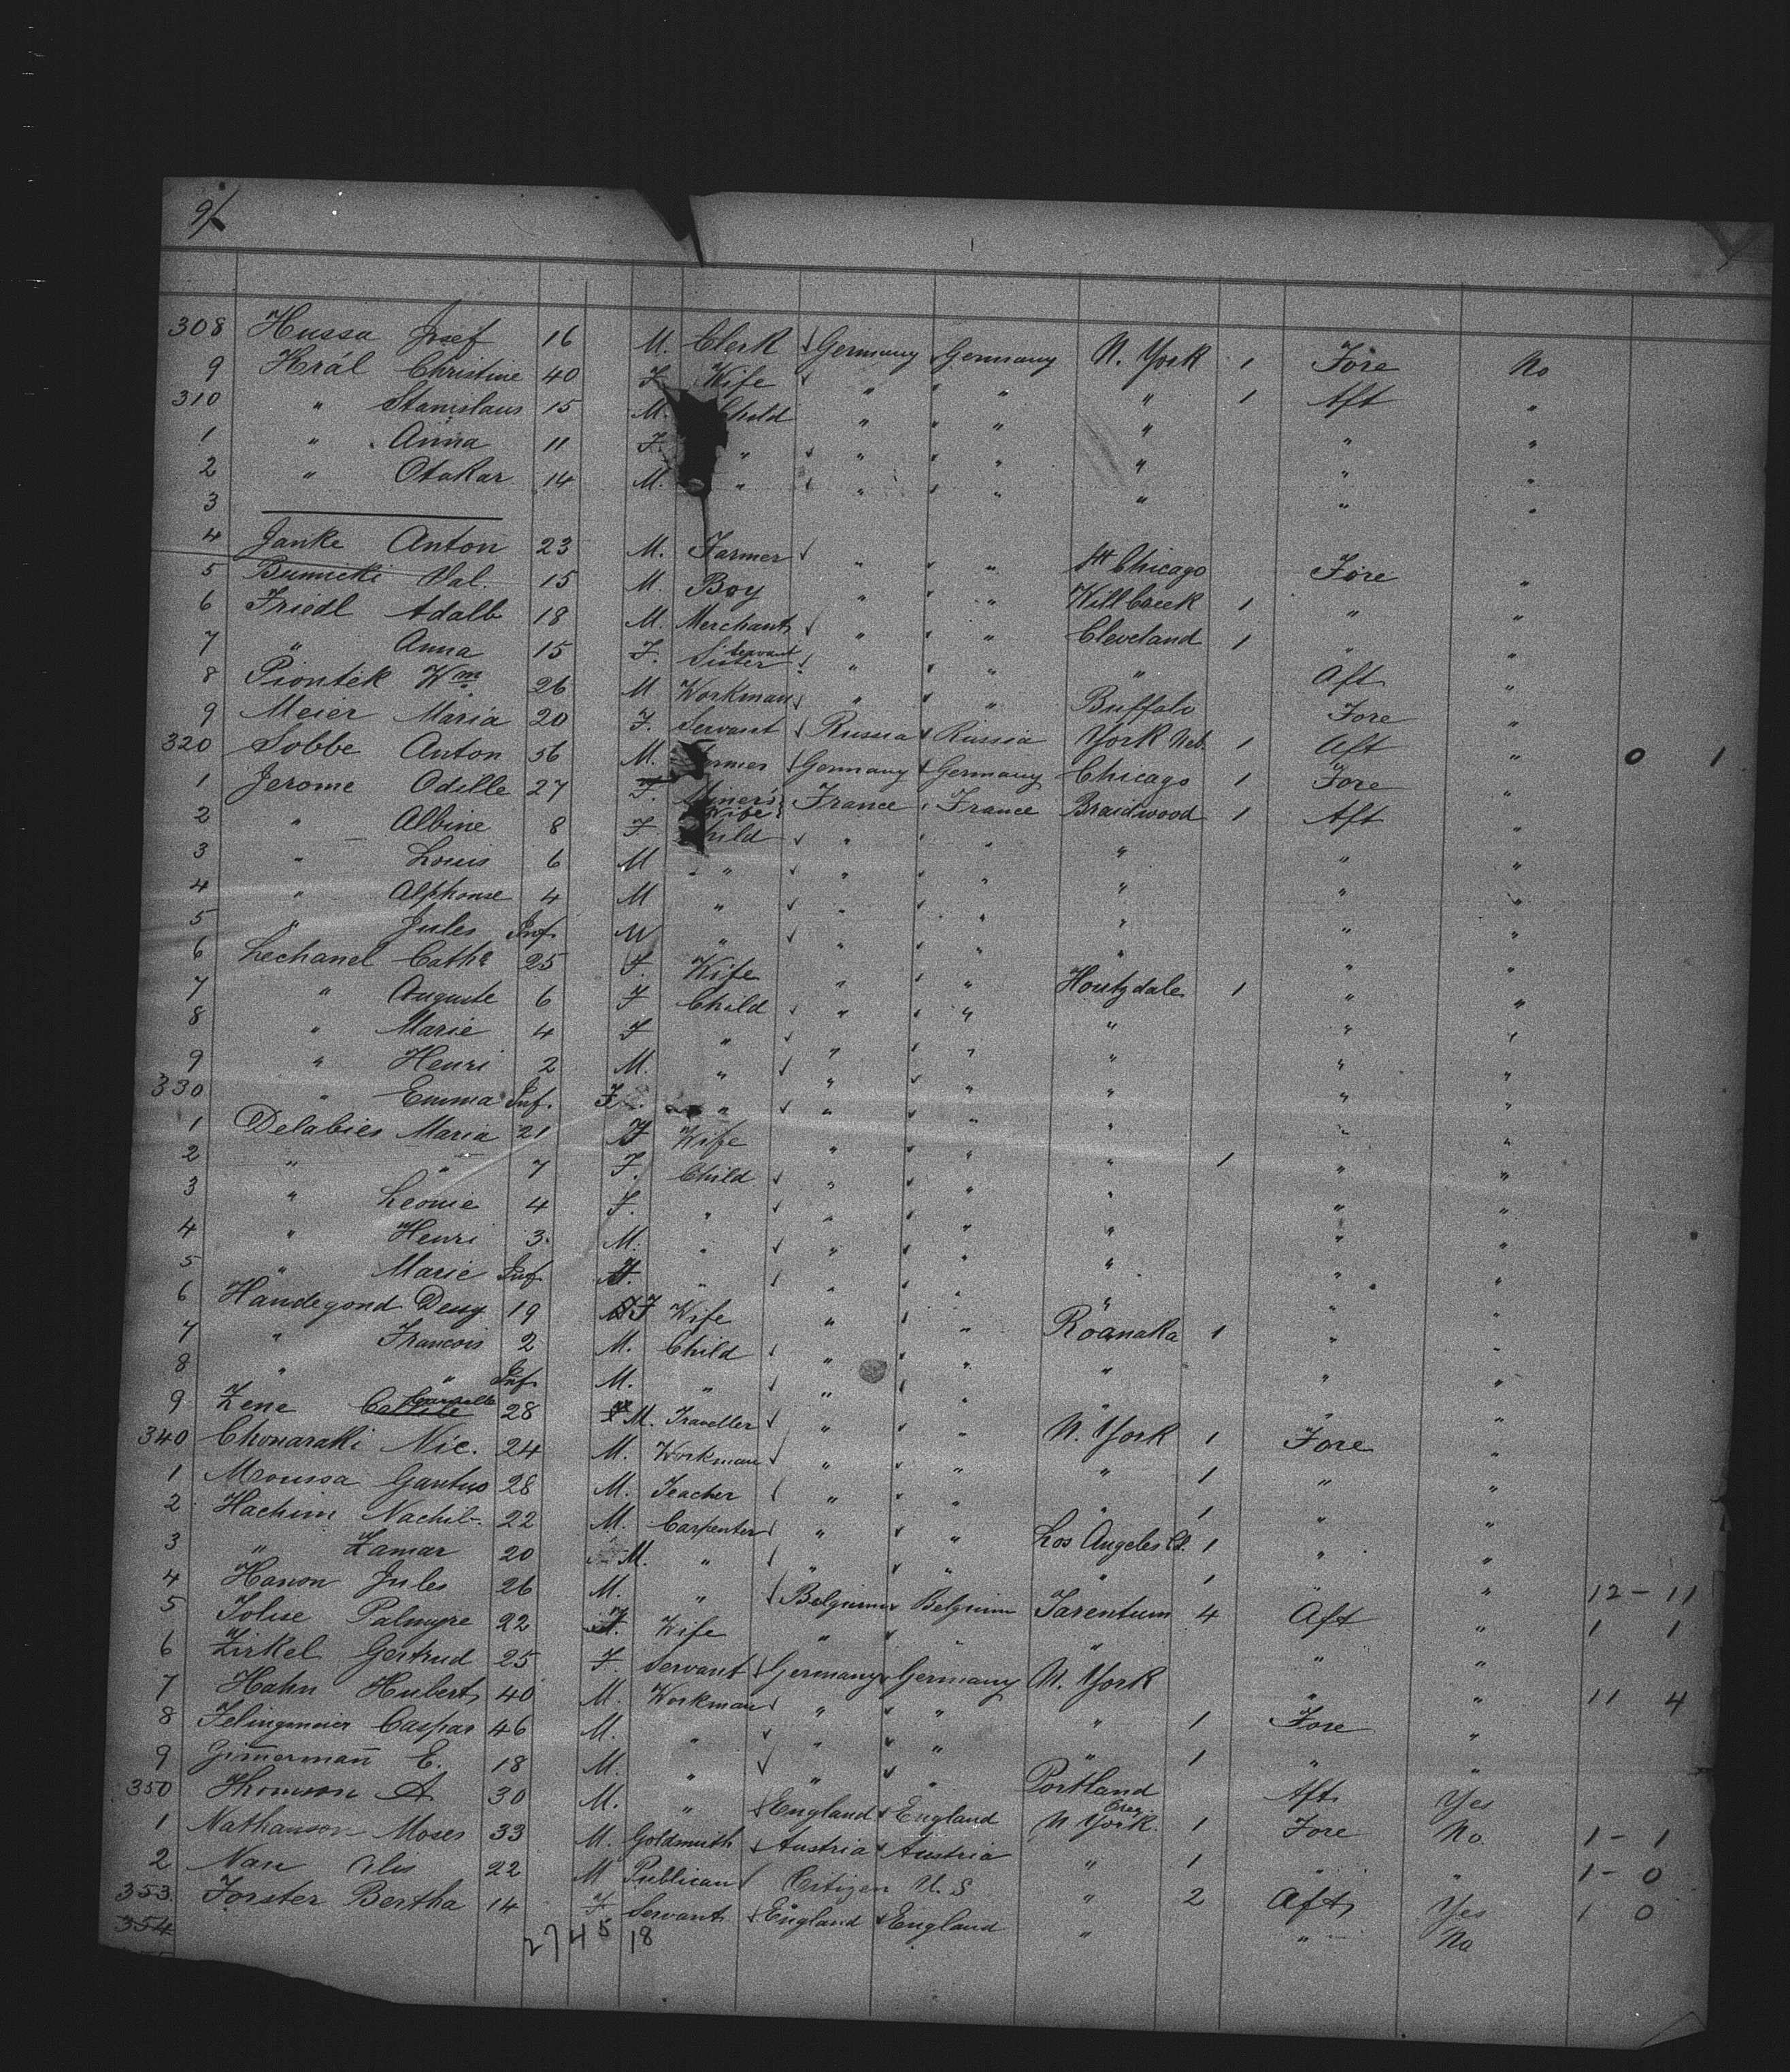 9/
308 Hussa Josef 16 M. Clerk Germany Germany N. York 1 Fore No
9 Král Christine 40 F Wife " " " 1 Aft "
310 " Stanislaus 15 M. Child " " " " "
1 " Anna 11 F. " " " " " "
2 " Otakar 14 M. " " " " " "
3
4 Janke Anton 23 M. Farmer " " Chicago Fore "
5 Val. 15 M. Boy " " Mill Creek 1 " "
6 Friedl Adalb 18 M. Merchant " " Cleveland 1 " "
7 " Anna 15 F. Sister Servant " " " Aft "
8 Piontek Wm 26 M Workman " " Buffalo Fore "
9 Meier Maria 20 F. Servant Russia Russia York Neb. 1 Aft "
320 Sobbe Anton 56 M. Farmer Germany Germany Chicago 1 Fore " 0 1
1 Jerome Odille 27 F. Miner's Wife France France Braidwood 1 Aft "
2 " Albine 8 F Child " " " " "
3 " Louis 6 M " " " " " "
4 " Alphonse 4 M " " " " " "
5 " Jules Inf. M " " " " " "
6 Lechanel Cathe 25 F. Wife " " Houtzdale 1 " "
7 " Auguste 6 F Child " " " " "
8 " Marie 4 F " " " " " "
9 " Henri 2 M. " " " " " "
330 " Emma Inf. F. " " " " " "
1 Delabies Maria 21 F Wife " " " 1 " "
2 " " 7 F. Child " " " " "
3 " Leonie 4 F. " " " " " "
4 " Henri 3. M. " " " " " "
5 " Marie Inf. F. " " " " " "
6 Handegond Desy 19 F Wife " " Roanaka 1 " "
7 " Francois 2 M. Child " " " " "
8 " " Inf. M. " " " " " "
9 Zene 28 M. Traveller " " N. York 1 Fore "
340 Chonaraki Nic. 24 M. Workman " " " 1 " "
1 Moussa Gantus 28 M. Teacher " " " 1 " "
2 Hachim Nachil 22 M. Carpenter " " Los Angeles Cl. 1 " "
3 " Zamar 20 M. " " " " 1 " " 12 - 11
4 Hanon Jules 26 M. " Belgium Belgium Tarentum 4 Aft " 1 1
5 Tolise Palmyre 22 F. Wife " " " " "
6 Zirkel Gertrud 25 F. Servant Germany Germany N. York " " 11 4
7 Hahn Hubert 40 M. Workman " " " 1 Fore "
8 Felingmeier Caspar 46 M. " " " " 1 " "
9 Zim̄erman̄ E. 18 M. " " " Portland Oreg Aft Yes
350 Thomson A 30 M. " England England N York. 1 Fore No. 1 - 1
1 Nathanson Moses 33 M. Goldsmith Austria Austria " 1 " " 1 - 0
2 Nan 22 M Publican Citizen U.S " 2 Aft Yes 1 0
353 Forster Bertha 14 F Servant England England " " No
354
2745 18